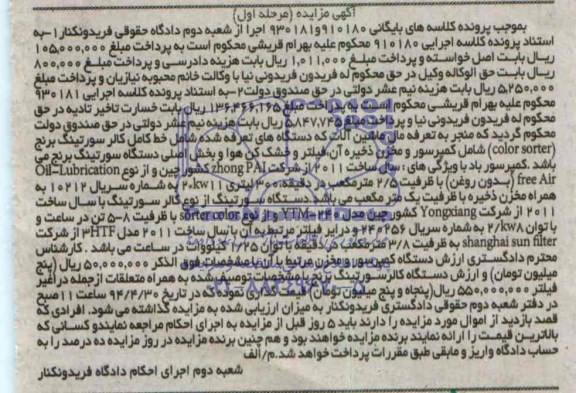 آگهی مزایده (مرحله اول)
بموجب پرونده کلاسه های بایگانی ۹۱۰۱۸۰ و ۹۳۰۱۸۱ اجرا از شعبه دوم دادگاه حقوقی فریدونکنار ۱-به
استناد پرونده کلاسه اجرایی ۹۱۰۱۸۰ محکوم علیه بهرام قریشی محکوم است به پرداخت مبلغ ۱۰۵,۰۰۰,۰۰۰
ریال بابت اصل خواسته و پرداخت مبلغ ۱,۰۱۱,۰۰۰ ریال بابت هزینه دادرسی و پرداخت مبلغ ۸۰۰,۰۰۰
ریال بابت حق الوکاله وکیل در حق محکوم له فریدون فریدونی نیا با وکالت خانم محبوبه نیازیان و پرداخت مبلغ
۵,۲۵۰,۰۰۰ ریال بابت هزینه نیم عشر دولتی در حق صندوق دولت ۲-به استناد پرونده کلاسه اجرایی ۹۳۰۱۸۱
محکوم علیه بهرام قریشی محکوم است به پرداخت مبلغ ۱۳۶,۴۶۶,۱۶۵ ریال بابت خسارت تاخیر تادیه در حق
محکوم له فریدون فریدونی نیا و پرداخت مبلغ ۵۸۴۷,۷۴۵ ریال بابت هزینه نیم عشر دولتی در حق صندوق دولت
محکوم گردید که منجر به تعرفه مال ماشین آلات که دستگاه های تعرفه شده شامل خط کامل کالر سورتینگ برنج
(color sorter) شامل کمپرسور و مخزن ذخیره آن، فیلتر و خشک کن هوا و بخش اصلی دستگاه سورتینگ برنج می
باشد .کمپرسور باد با ویژگی های : سال ساخت ۲۰۱۱ از شرکت zhong PAI کشور چین و از نوع Oil-Lubrication
free Air (بدون روغن) با ظرفیت ۲/۵ مترمکعب در دقیقه، ۳۰۰ لیتری ۲۰،kw۱۱ به شماره سریال ۱۰۲۱۲ به
همراه مخزن ذخیره با ظرفیت یک متر مکعب می باشد. دستگاه سورتینگ از نوع کالر سورتینگ با سال ساخت
۲۰۱۱ از شرکت Yongxiang کشور چین مدل YTM-۲۴۰ و از نوع sorter color با ظرفیت ۸-۵ تن در ساعت و
با توان ۲/kw۸ به شماره سریال ۲۴۰۲۵۶ و درایر فیلتر مرتبط به آن با سال ساخت ۲۰۱۱ مدل ۳HTF از شرکت
shanghai sun filter به ظرفیت ۳/۸ مترمکعب در دقیقه با توان ۱/۲۵ کیلووات در ساعت می باشد . کارشناس
محترم دادگستری ارزش دستگاه کمپرسور و مخزن مرتبط با آن با مشخصات فوق الذکر ۵۰,۰۰۰,۰۰۰ ریال (پنج
میلیون تومان) و ارزش دستگاه کالرسورتینگ برنج با مشخصات توصیف شده به همراه متعلقات ازجمله درایر
فیلتر ۵۵۰,۰۰۰,۰۰۰ ریال(پنجاه و پنج میلیون تومان) قیمت گذاری نموده که در تاریخ ۹۴/۴/۳۰ ساعت ۱۱ صبح
در دفتر شعبه دوم حقوقی دادگستری فریدونکنار به میزان ارزیابی شده به مزایده گذاشته می شود. افرادی که
قصد بازدید از اموال مورد مزایده را دارند باید ۵ روز قبل از مزایده به اجرای احکام مراجعه نمایندو کسانی که
بالاترین قیمت را ارائه نمایند برنده مزایده خواهند بود و هم چنین برنده مزایده در روز مزایده ده درصد را به
حساب دادگاه واریز و مابقی طبق مقررات پرداخت خواهد شد.م/الف
شعبه دوم اجرای احکام دادگاه فریدونکنار